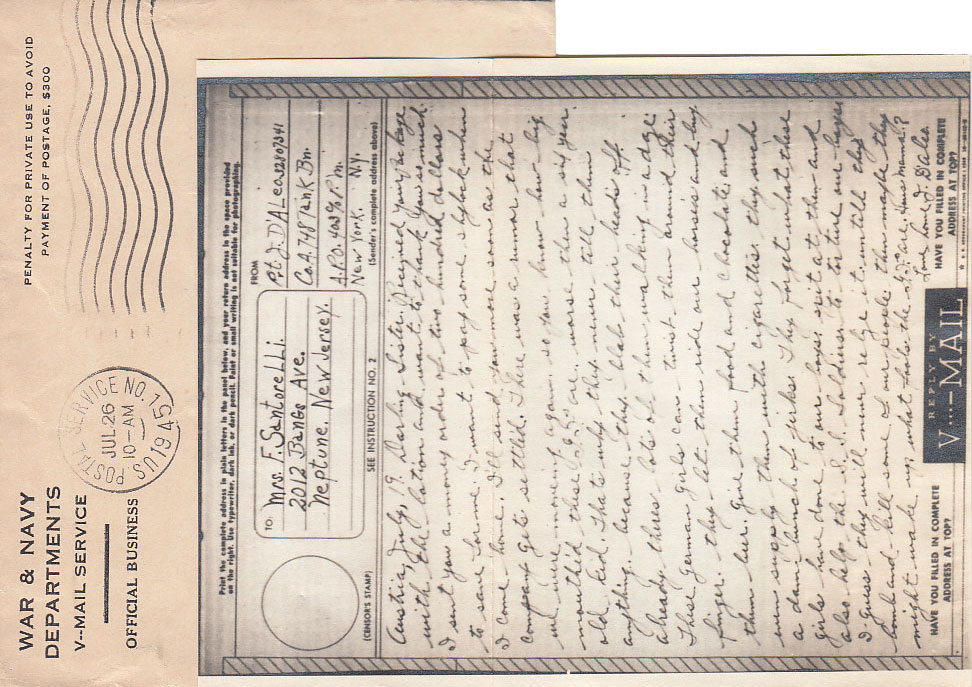 WAR & NAVY
DEPARTMENTS
V--MAIL SERVICE
OFFICIAL BUSINESS
US POSTAL SERVICE NO. 15
JUL 26
10-AM
1945
PENALTY FOR PRIVATE USE TO AVOID
PAYMENT OF POSTAGE, $300
Print the complete address in plain letters in the panel below, and your return address in the space provided
on the right. Use typewriter, dark ink, or dark pencil. Faint or small writing is not suitable for photographing.
TO:
Mrs. F. Santorelli.
2012 Bangs Ave.
Neptune. New Jersey.
FROM
Pvt. J. DALea 32807341
Co A. 748 Tank Bn.
A.P.O. 403 % P.M.
New York. N.Y.
(Sender's complete address above)
(CENSOR'S STAMP)
SEE INSTRUCTION NO. 2
Austria, July, 19. Darling Sister: Received your package
with the lotion and want to thank you so much.
I sent you a money order of two hundred dollars
to save for me. I want to pay some when
I come home. I'll send you more as soon as the
company gets settled. There was a rumor that
we were moving again. so you know how big
mouth'd these G.I.s are. worse then a six year
old kid. thats why they never tell them
anything. because they blab their heads off.
already theres lots of them walking in a daze
These German girls can twist them around their
finger. they let them ride our horsis and buy
them beer. Give them food and chocolate and
even supply them with cigarettes. they such
a dame bunch of jerks. They forget what these
girls have done to our boys. spit at them and
also help the S.S. Soldiers to torture our boys
I guess they will never relize it untill they
bomb and kill some of our people. then maybe they
might wake up, what fools the G.I. are.
Love J. Dalea
HAVE YOU FILLED IN COMPLETE
ADDRESS AT TOP?
REPLY BY
V···—MAIL
HAVE YOU FILLED IN COMPLETE
ADDRESS AT TOP?